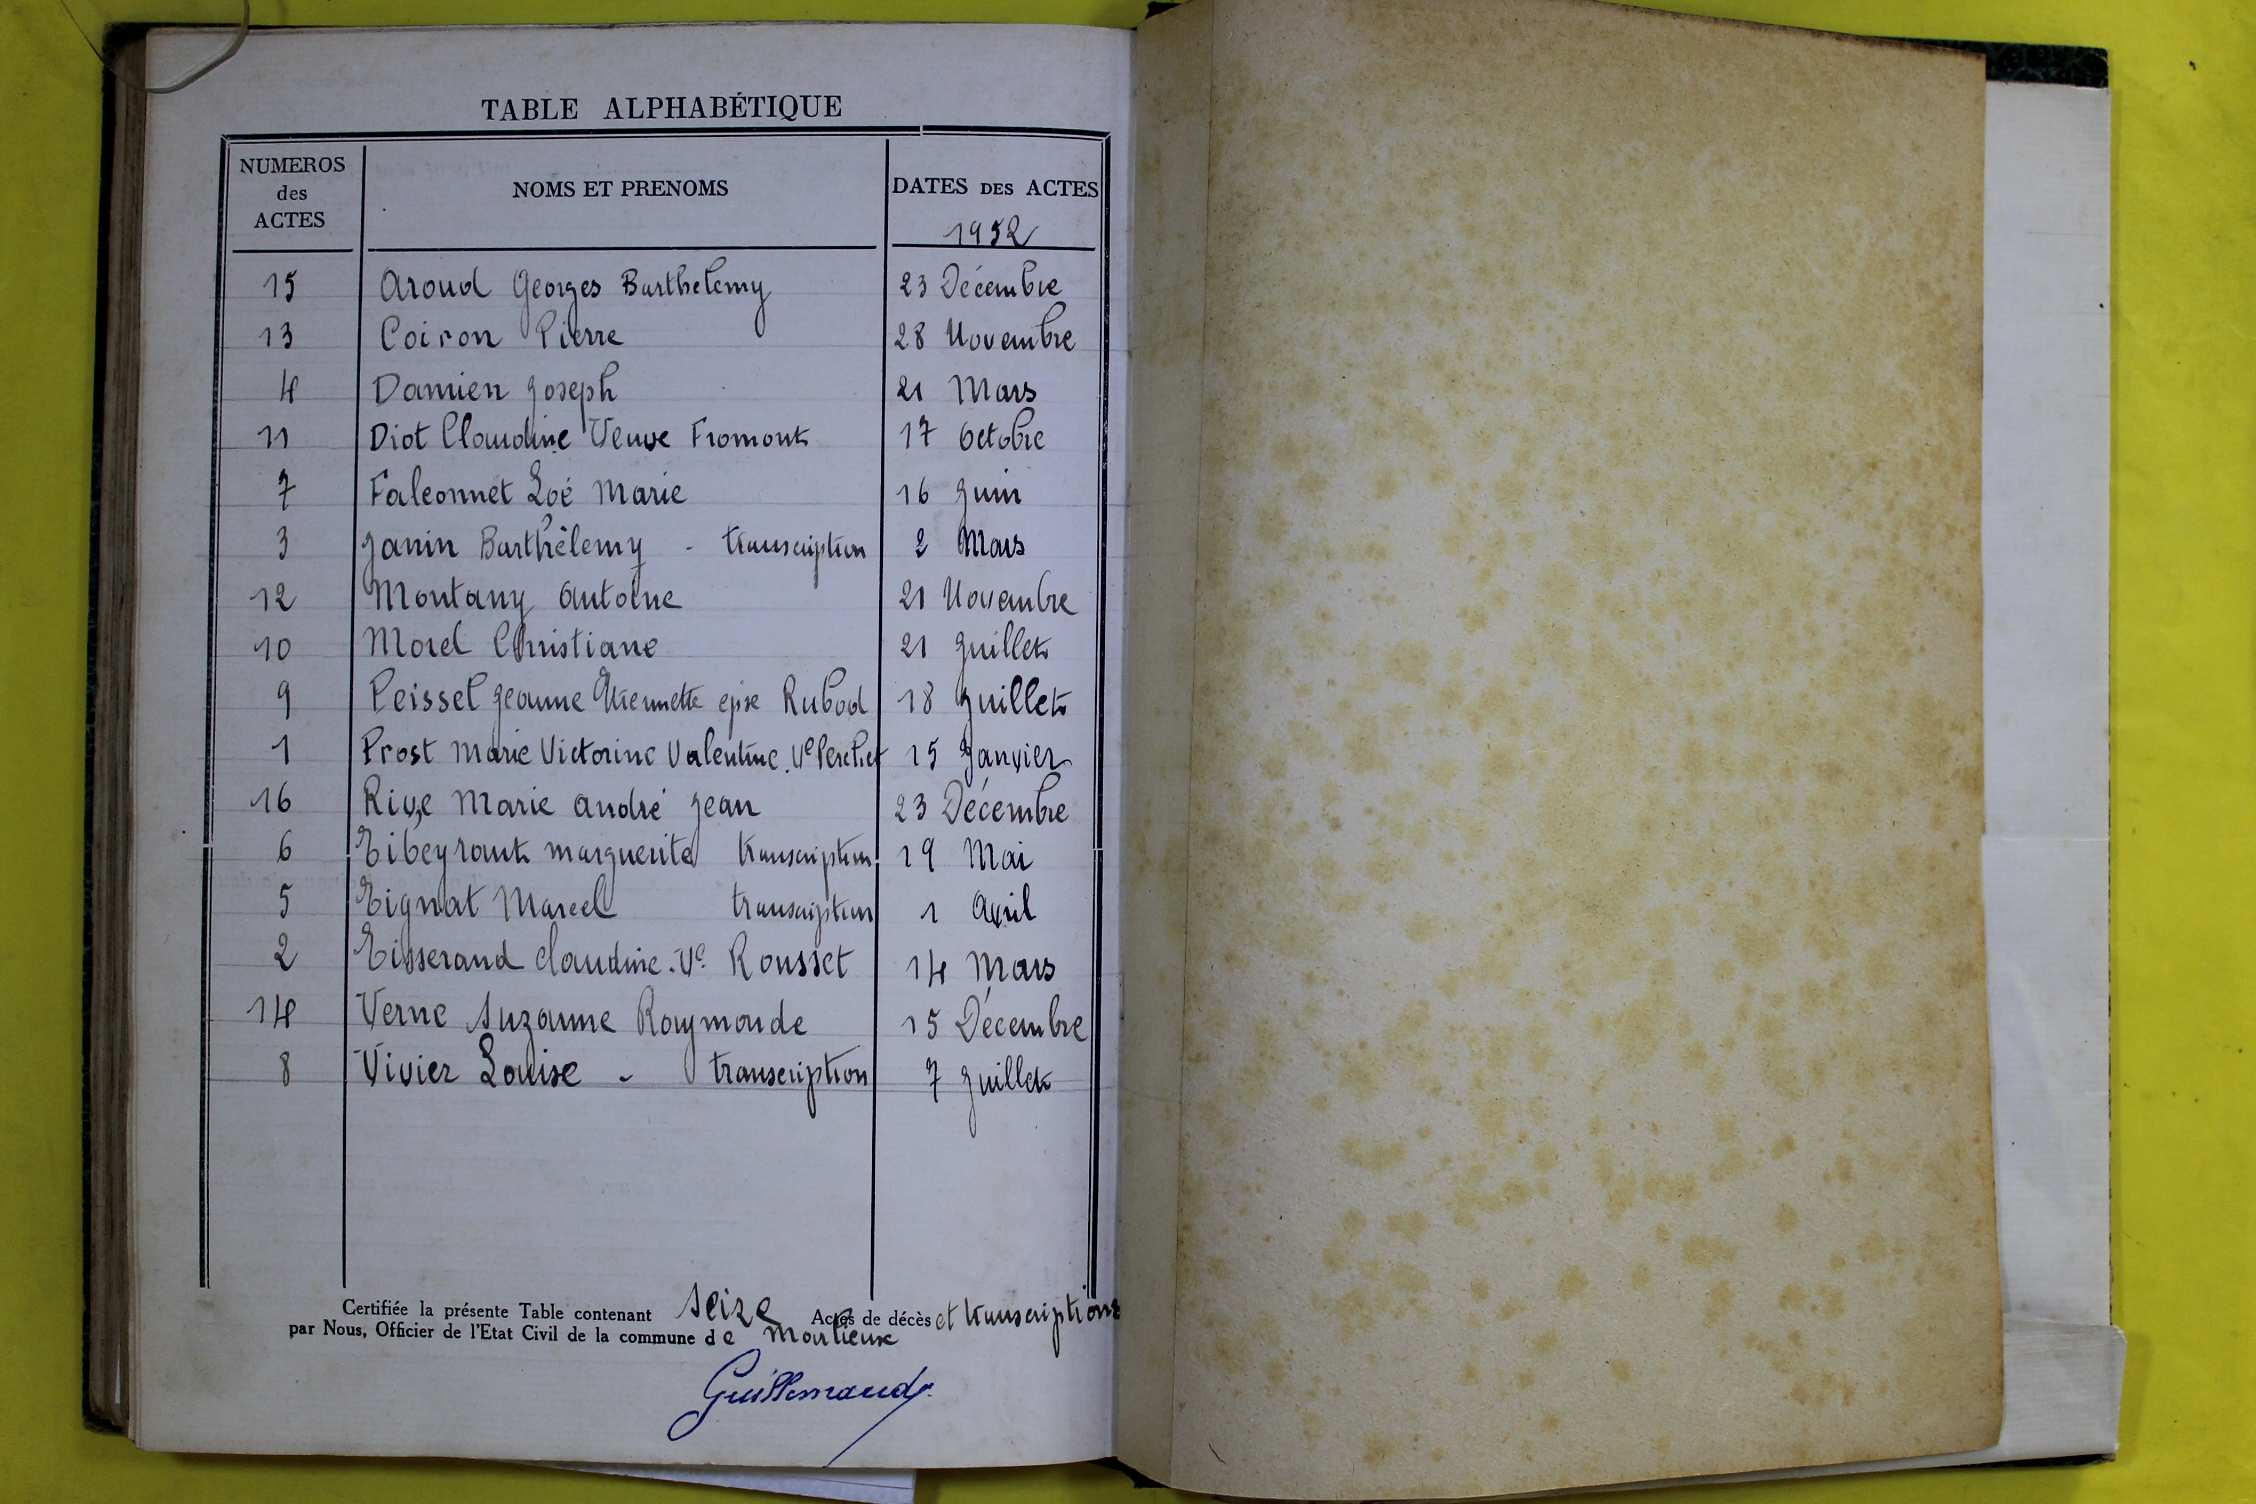 TABLE ALPHABÉTIQUE
NUMEROS des ACTES NOMS ET PRENOMS DATES DES ACTES
1952
15 Aroud Georges Barthelemy 23 Décembre
13 Coiron Pierre 28 Novembre
4 Damien Joseph 21 Mars
11 Diot Claudine Veuve Fromont 17 Octobre
7 Falconnet Zoé Marie 16 Juin
3 Janin Barthélemy - transcription 2 Mars
12 Montany Antoine 21 Novembre
10 Morel Christiane 21 Juillet
9 Peissel Jeanne Etiennette epse Rubod 18 Juillet
1 Prost Marie Victorine Valentine. Ve Perchet 15 Janvier
16 Rive Marie André Jean 23 Décembre
6 Tibeyrant Marguerite transcription 19 Mai
5 Tignat Marcel transcription 1 Avril
2 Tisserand Claudine. Ve Rousset 14 Mars
14 Verne Suzanne Raymonde 15 Décembre
8 Vivier Louise - transcription 7 Juillet
Certifiée la présente Table contenant seize Actes de décès et transcriptions
par Nous, Officier de l'Etat Civil de la commune de
Guillemaud